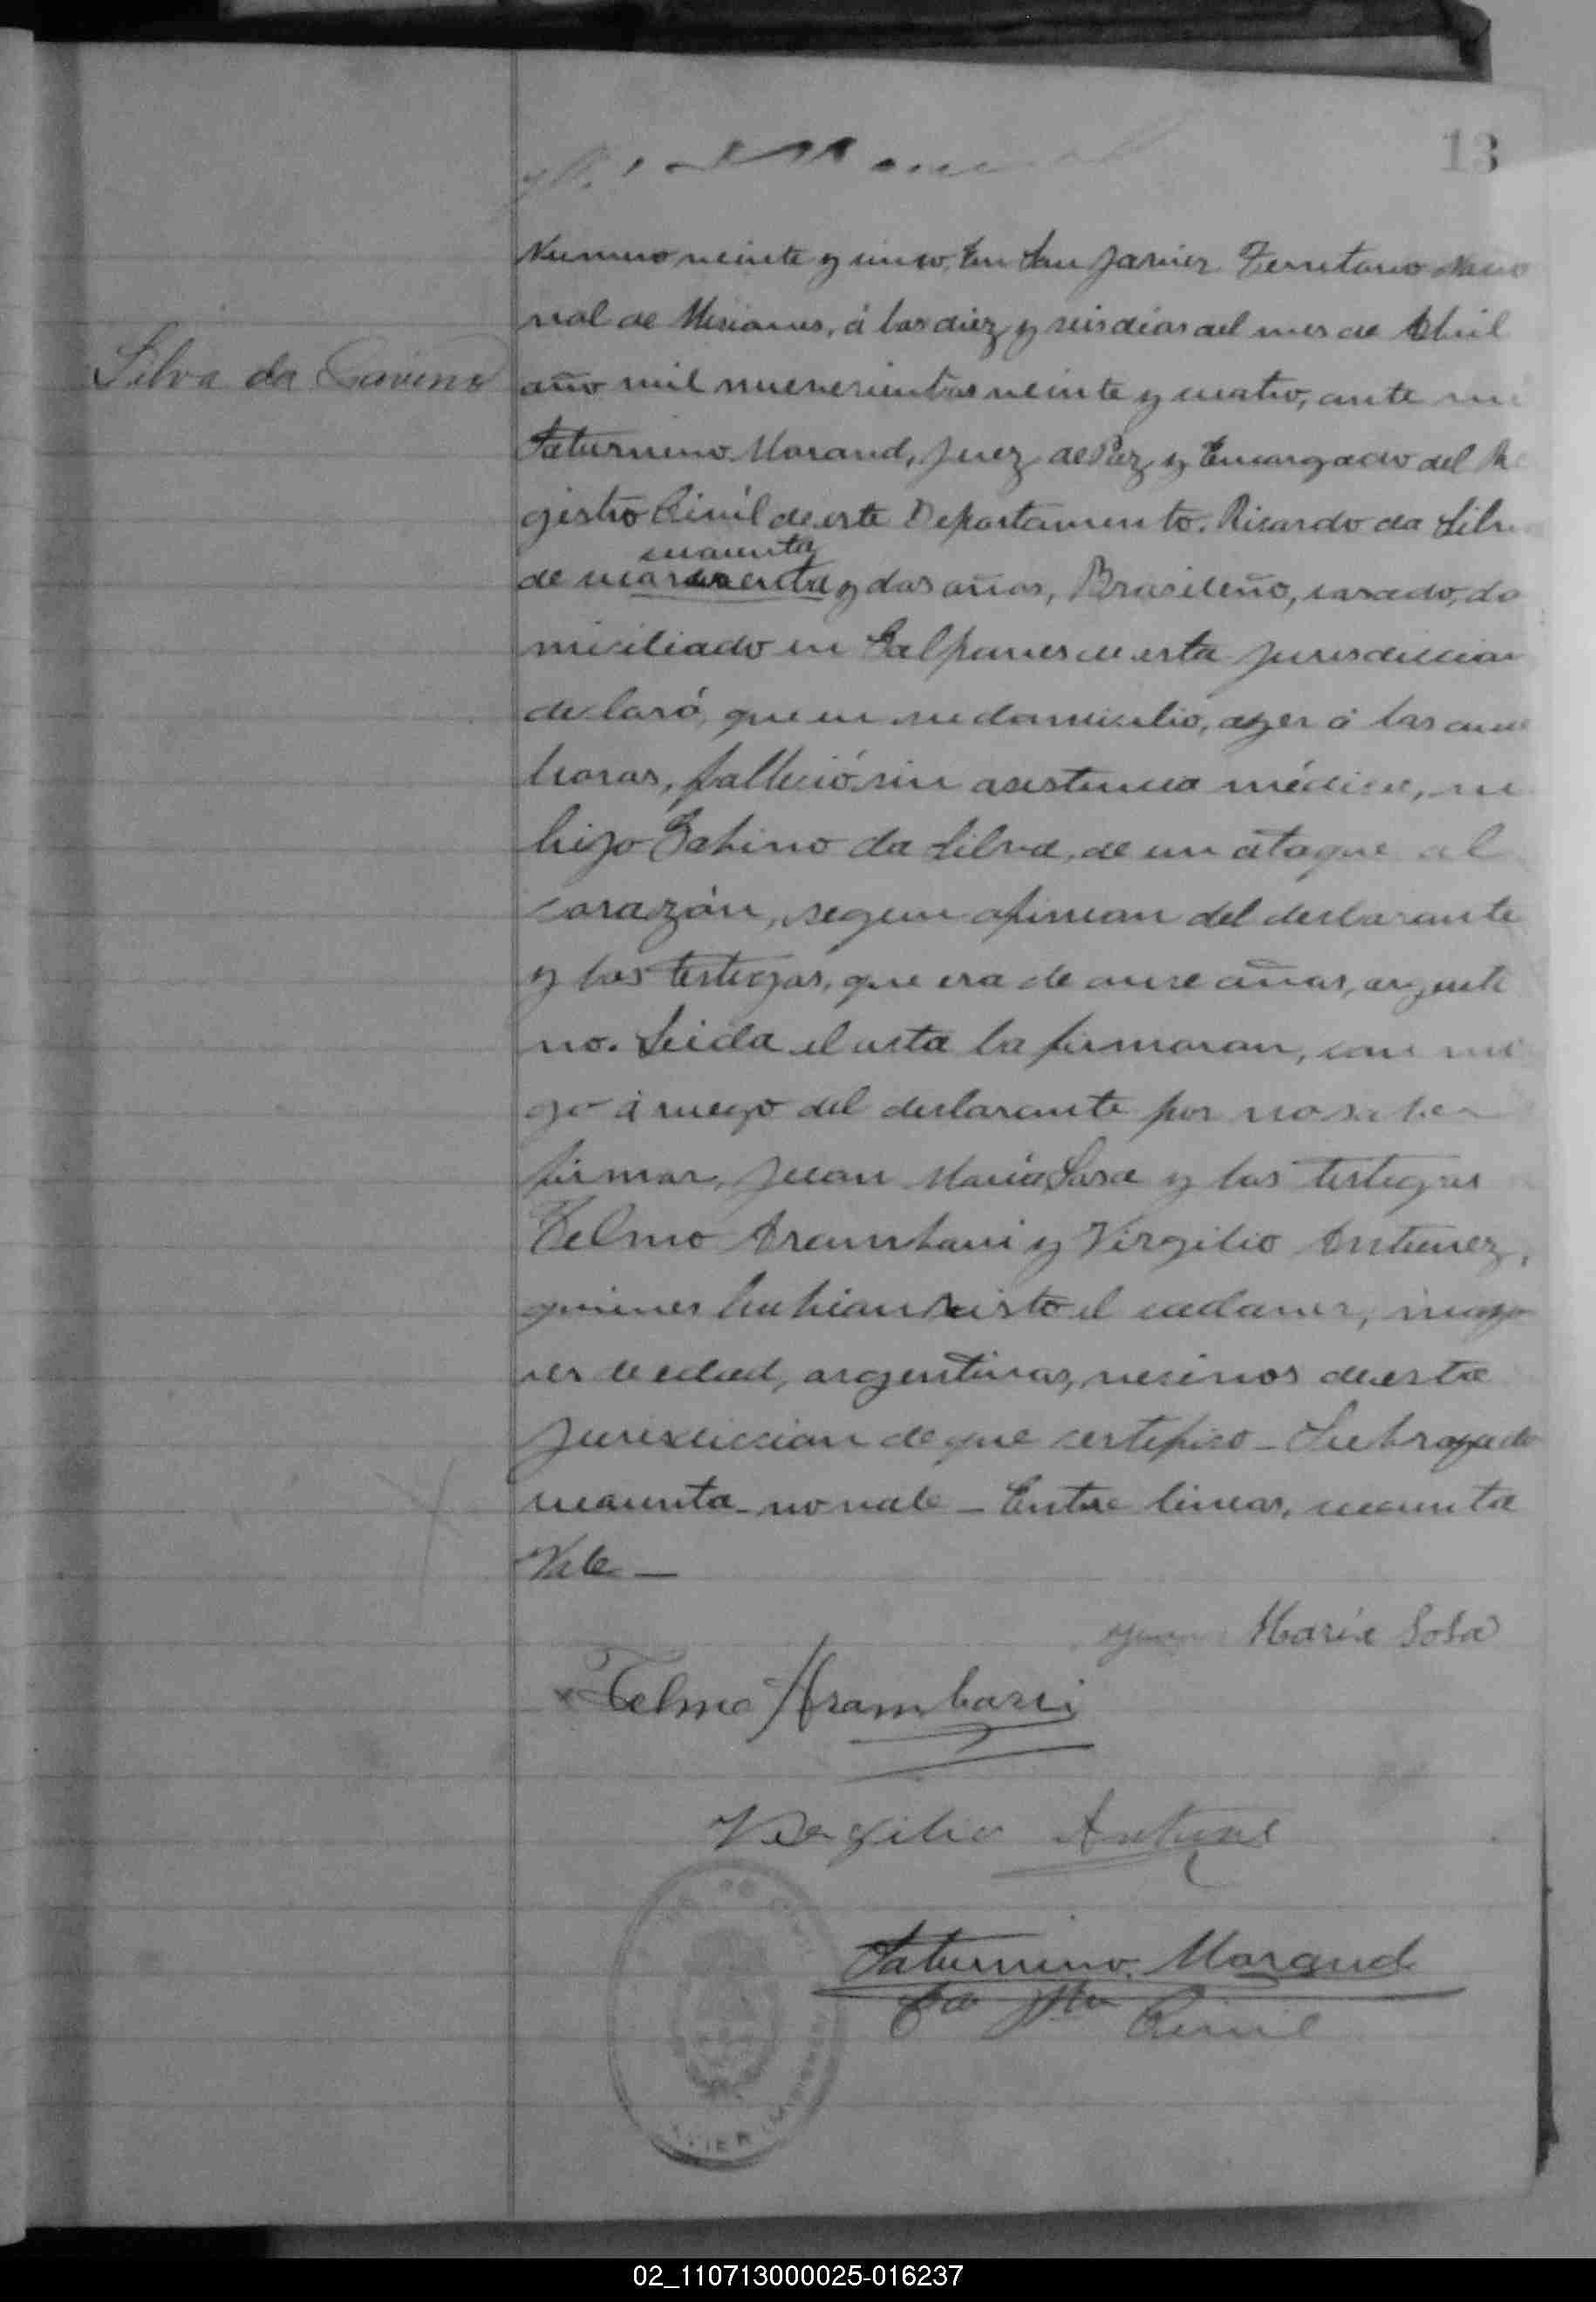 13
Silva da Gavino
Numero veinte y cinco, En San Javier Territorio Nacio
nal de Misiones, á los diez y seis dias del mes de Abril
año mil novecientos veinte y cuatro, ante mi
Saturnino Morand, Juez de Paz y Encargado del Re
gistro Civíl de este Departamento. Ricardo da Silva
cuarenta
de y dos años, Brasileño, casado, do
miciliado en Galpones de esta jurisdiccion
declaró, que en su domicilio, ayer á las once
horas, falleció sin asistencia médica, su
hijo Gabino da Silva, de un ataque al
corazón, segun opinion del declarante
y los testigos, que era de once años, argenti
no. Leida el acta la firmaron, con mi
go á ruego del declarante por no saber
firmar, Juan María Sosa y los testigos
Telmo Arambarri y Virgilio Antunez,
quienes habian visto el cadaver, mayo
res de edad, argentinos, vecinos de esta
jurisdiccion de que certifico - Subrayado
cuarenta - no vale - Entre lineas, cuarenta
Vale -
Juan María Sosa
Telmo Arambarri
Virgilio Antunes
Saturnino Morand
Civil
02_110713000025-016237